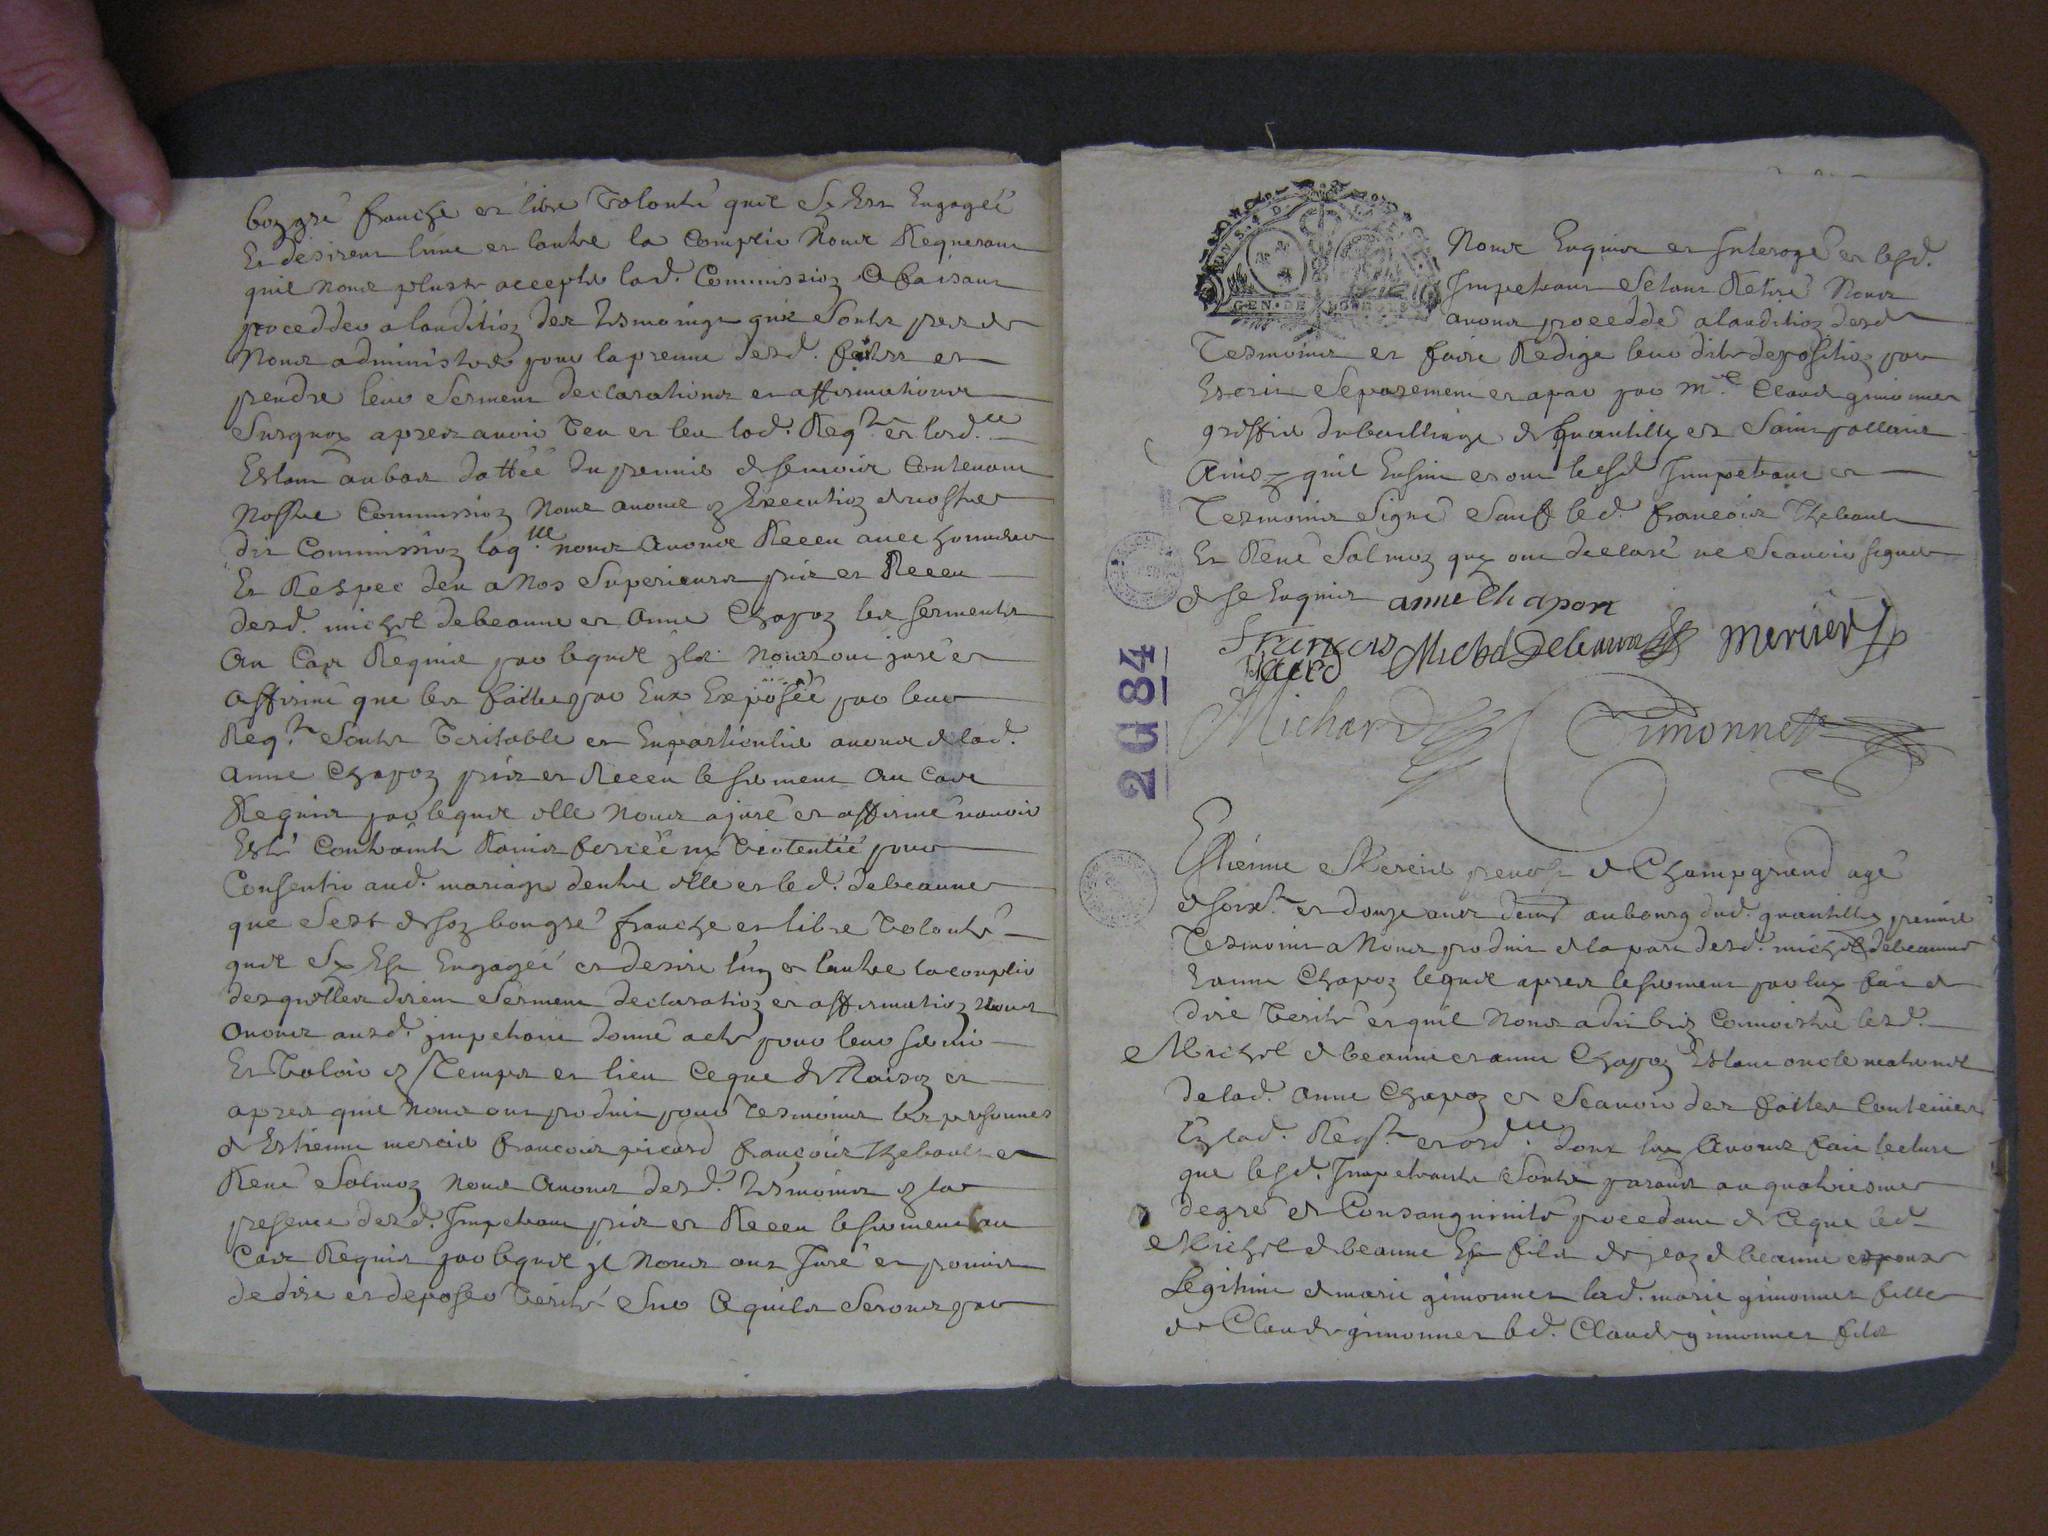 bon gré franche et libre volonté quil sy Est Engagéé
Et desirent lune et lautre la Complir Nous Requerant
quil nous plaise accepter lad. Commission Ce faisant
procedder a laudition des tesmoings quil
Nous administrer pour la preuve desd. faits et
prendre leur serment declarations et affirmations
Surquoy apres avoir Veu et leu lad. Reqte et lord.ce
Estant au bas dattéé du premier Contenant
Nostre Commission Nous avons En Execution de nostre
dit Commission laq.lle nous avons Receu avec honneur
Et Respec deu a Nos Superieurs pris et Receu
desd. michel debeaune et anne Chapon les serments
au Cas Requis par lequel jlz Nous ont juré et
affirmé que les faits par Eux Exposéé par leur
Reqte Sont Veritable et En particulier avons de lad.
anne Chapon pris et Receu le serment au Cas
Requis par lequel elle Nous a juré et affirmé navoir
Esté Contrainte Ravie forcéé ny Viotentéé pour
Consentir aud. mariage dentre elle et led. debeaune
que Sest de son bongré franche et libre Volonté
quil sy Est Engagéé et desire lun et lautre lacomplir
desquelles dire serment declaration et affirmation nous
avons ausd. jmpetrant donné acte pour leur servir
Et Valoir En Temps et lieu Ce que de Raison et
apres quil nous ont produit pour Tesmoins les personnes
de Estienne mercier francois picard francois Thebault et
René Salmon Nous avons desd. tesmoins En la
presence desd. Jmpetrant pris et Receu le serment au
Cas Requis par lequel jl Nous ont Juré et promis
de dire et deposer Verité Sur Ce quils Seront par
GEN. DE
Nous Enquis et Interogé et lesd.
Jmpetrant Setant Retiré Nous
avons procedde a laudition desd
Tesmoins et faire Redige leur dite deposition par
Escrit Separement et apar par Me. Claude gimonnet
greffier du bailliage de quantilly et Saint pallais
Ainsy quil Ensuit et ont lesd Jmpetrant et
Tesmoins Signé Sauf led. francois Thebault
Et René Salmon quy ont declaré ne Scavoir signer
de ce Enquis anne Chapon
François Picard Michel Debeaune Mercier
Michard Gimonnet
2 G 84
Estienne Mercier prevost de Champgrand agé
de soixte et douze ans demt au bourg dud. quantilly premier
Tesmoin a Nous produit de la part desd. michel debeaune
Et anne Chapon lequel apres le serment par luy fait de
dire Verité et quil Nous a dit bien Connoistre lesd.
Michel de beaune et anne Chapon Estant oncle maternel
de lad. anne Chapon et Scavoir des faittes Contenües
En lad. Reqte et ord.ce dont luy avons fait lecture
que lesd. Jmpetrants Sont parands au quatriesme
degré de Consanguinité procedant de Ce que led.
Michel de beaune Est fils de jean de beaune expoux
Legitime de marie gimonnet lad. marie gimonnet fille
de Claude gimonnet led. Claude gimonnet fils